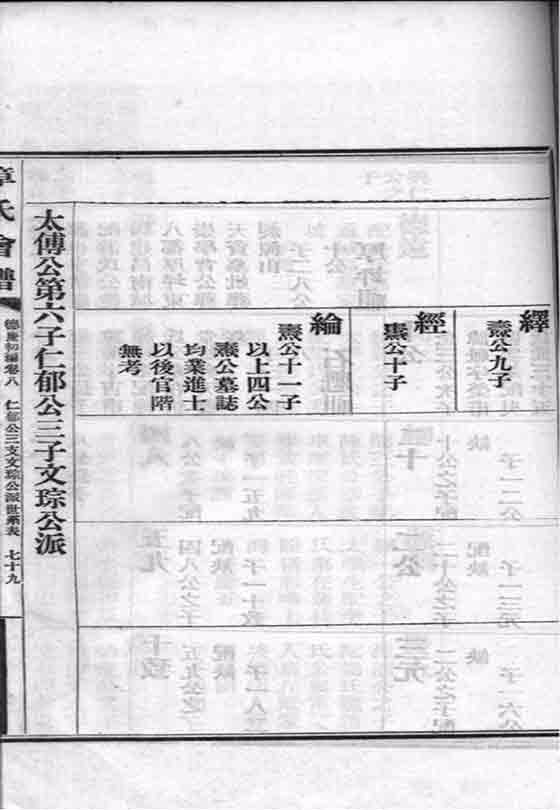 繹
燾公九子
經
燾公十子
綸
燾公十一子
以上四公
燾公墓誌
均業進士
以後官階
無考
太傅公第六子仁郁公三子文琮公派
章氏會譜
德慶初編卷八 仁郁公三支文琮公派世系表 七十九